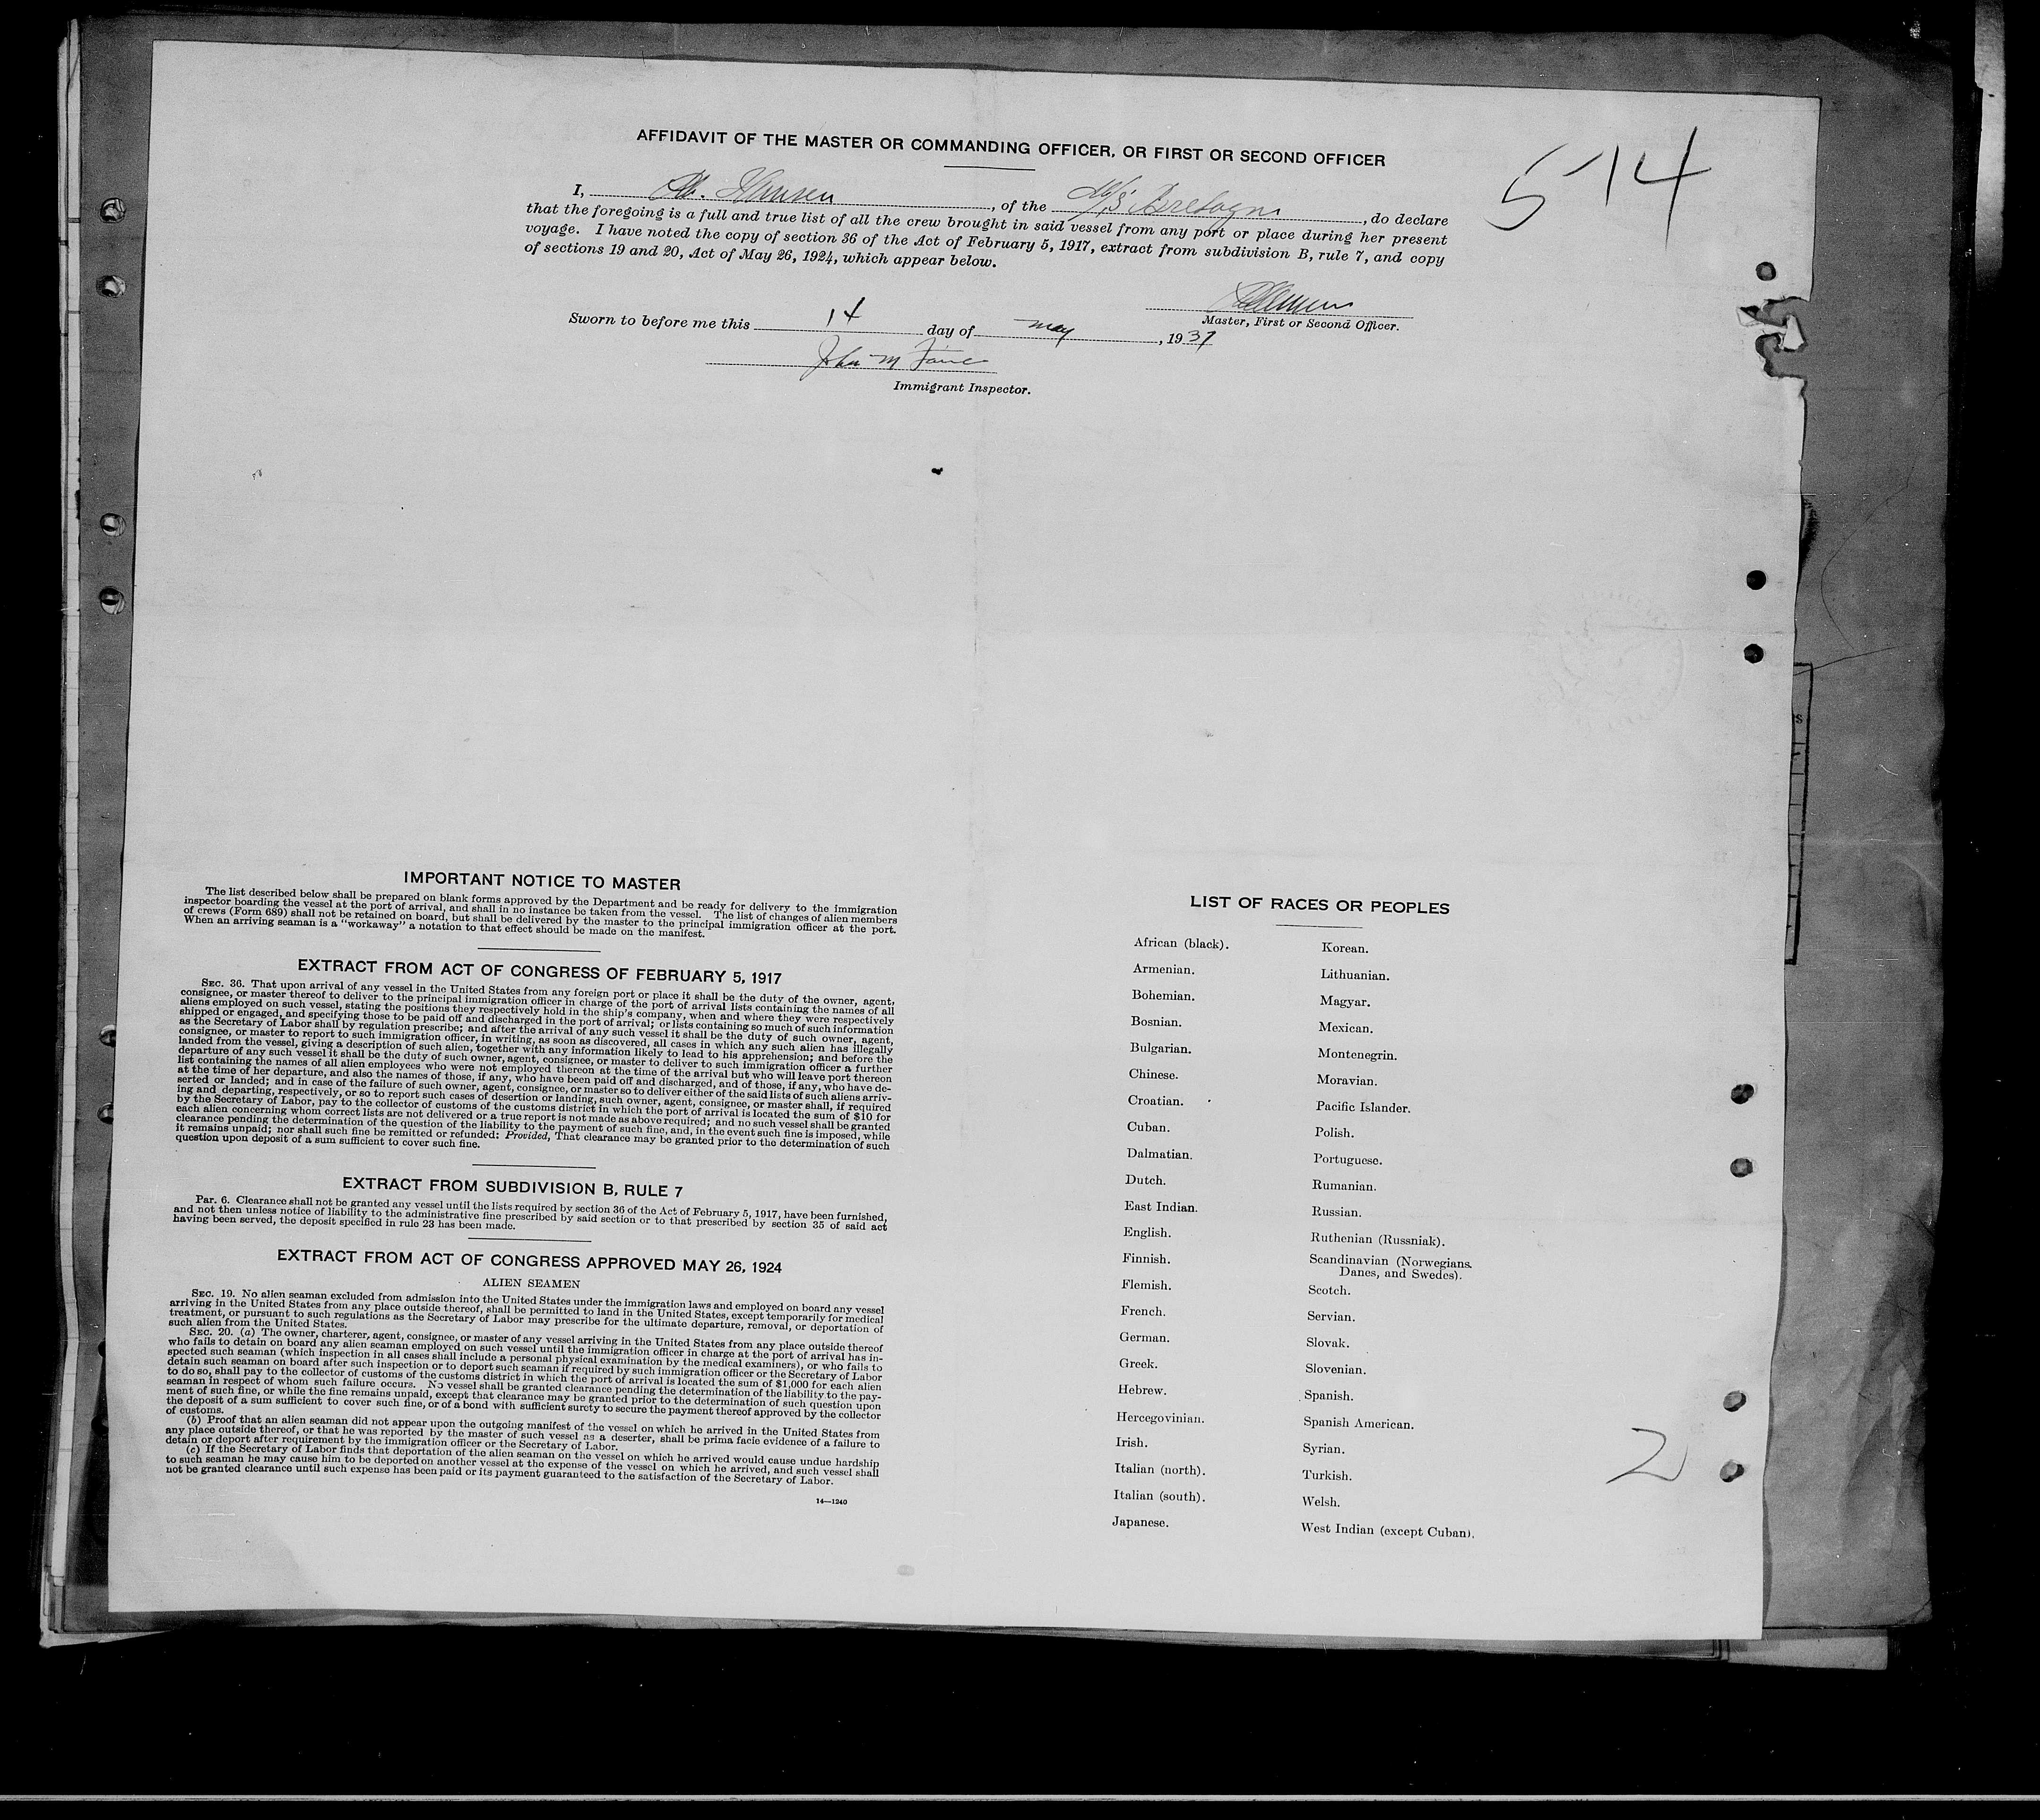 AFFIDAVIT OF THE MASTER OR COMMANDING OFFICER, OR FIRST OR SECOND OFFICER
514
I, Hansen, of the M/S Bretagne, do declare
that the foregoing is a full and true list of all the crew brought in said vessel from any port or place during her present
voyage. I have noted the copy of section 36 of the Act of February 5, 1917, extract from subdivision B, rule 7, and copy
of sections 19 and 20, Act of May 26, 1924, which appear below.
Master, First or Second Officer.
Sworn to before me this 14 day of May, 1937
John M
Immigrant Inspector.
IMPORTANT NOTICE TO MASTER
The list described below shall be prepared on blank forms approved by the Department and be ready for delivery to the immigration
inspector boarding the vessel at the port of arrival, and shall in no instance be taken from the vessel. The list of changes of alien members
of crews (Form 689) shall not be retained on board, but shall be delivered by the master to the principal immigration officer at the port.
When an arriving seaman is a "workaway" a notation to that effect should be made on the manifest.
EXTRACT FROM ACT OF CONGRESS OF FEBRUARY 5, 1917
SEC. 36. That upon arrival of any vessel in the United States from any foreign port or place it shall be the duty of the owner, agent,
consignee, or master thereof to deliver to the principal immigration officer in charge of the port of arrival lists containing the names of all
aliens employed on such vessel, stating the positions they respectively hold in the ship's company, when and where they were respectively
shipped or engaged, and specifying those to be paid off and discharged in the port of arrival; or lists containing so much of such information
as the Secretary of Labor shall by regulation prescribe; and after the arrival of any such vessel it shall be the duty of such owner, agent,
consignee, or master to report to such immigration officer, in writing, as soon as discovered, all cases in which any such alien has illegally
landed from the vessel, giving a description of such alien, together with any information likely to lead to his apprehension; and before the
departure of any such vessel it shall be the duty of such owner, agent, consignee, or master to deliver to such immigration officer a further
list containing the names of all alien employees who were not employed thereon at the time of the arrival but who will leave port thereon
at the time of her departure, and also the names of those, if any, who have been paid off and discharged, and of those, if any, who have de-
serted or landed; and in case of the failure of such owner, agent, consignee, or master so to deliver either of the said lists of such aliens arriv-
ing and departing, respectively, or so to report such cases of desertion or landing, such owner, agent, consignee, or master shall, if required
by the Secretary of Labor, pay to the collector of customs of the customs district in which the port of arrival is located the sum of $10 for
each alien concerning whom correct lists are not delivered or a true report is not made as above required; and no such vessel shall be granted
clearance pending the determination of the question of the liability to the payment of such fine, and, in the event such fine is imposed, while
it remains unpaid; nor shall such fine be remitted or refunded: Provided, That clearance may be granted prior to the determination of such
question upon deposit of a sum sufficient to cover such fine.
EXTRACT FROM SUBDIVISION B, RULE 7
Par. 6. Clearance shall not be granted any vessel until the lists required by section 36 of the Act of February 5, 1917, have been furnished,
and not then unless notice of liability to the administrative fine prescribed by said section or to that prescribed by section 35 of said act
having been served, the deposit specified in rule 23 has been made.
EXTRACT FROM ACT OF CONGRESS APPROVED MAY 26, 1924
ALIEN SEAMEN
SEC. 19. No alien seaman excluded from admission into the United States under the immigration laws and employed on board any vessel
arriving in the United States from any place outside thereof, shall be permitted to land in the United States, except temporarily for medical
treatment, or pursuant to such regulations as the Secretary of Labor may prescribe for the ultimate departure, removal, or deportation of
such alien from the United States.
SEC. 20. (a) The owner, charterer, agent, consignee, or master of any vessel arriving in the United States from any place outside thereof
who fails to detain on board any alien seaman employed on such vessel until the immigration officer in charge at the port of arrival has in-
spected such seaman (which inspection in all cases shall include a personal physical examination by the medical examiners), or who fails to
detain such seaman on board after such inspection or to deport such seaman if required by such immigration officer or the Secretary of Labor
to do so, shall pay to the collector of customs of the customs district in which the port of arrival is located the sum of $1,000 for each alien
seaman in respect of whom such failure occurs. No vessel shall be granted clearance pending the determination of the liability to the pay-
ment of such fine, or while the fine remains unpaid, except that clearance may be granted prior to the determination of such question upon
the deposit of a sum sufficient to cover such fine, or of a bond with sufficient surety to secure the payment thereof approved by the collector
of customs.
(b) Proof that an alien seaman did not appear upon the outgoing manifest of the vessel on which he arrived in the United States from
any place outside thereof, or that he was reported by the master of such vessel as a deserter, shall be prima facie evidence of a failure to
detain or deport after requirement by the immigration officer or the Secretary of Labor.
(c) If the Secretary of Labor finds that deportation of the alien seaman on the vessel on which he arrived would cause undue hardship
to such seaman he may cause him to be deported on another vessel at the expense of the vessel on which he arrived, and such vessel shall
not be granted clearance until such expense has been paid or its payment guaranteed to the satisfaction of the Secretary of Labor.
14—1240
LIST OF RACES OR PEOPLES
African (black).
Armenian.
Bohemian.
Bosnian.
Bulgarian.
Chinese.
Croatian.
Cuban.
Dalmatian.
Dutch.
East Indian.
English.
Finnish.
Flemish.
French.
German.
Greek.
Hebrew.
Hercegovinian.
Irish.
Italian (north).
Italian (south).
Japanese.
Korean.
Lithuanian.
Magyar.
Mexican.
Montenegrin.
Moravian.
Pacific Islander.
Polish.
Portuguese.
Rumanian.
Russian.
Ruthenian (Russniak).
Scandinavian (Norwegians,
Danes, and Swedes).
Scotch.
Servian.
Slovak.
Slovenian.
Spanish.
Spanish American.
Syrian.
Turkish.
Welsh.
West Indian (except Cuban).
2